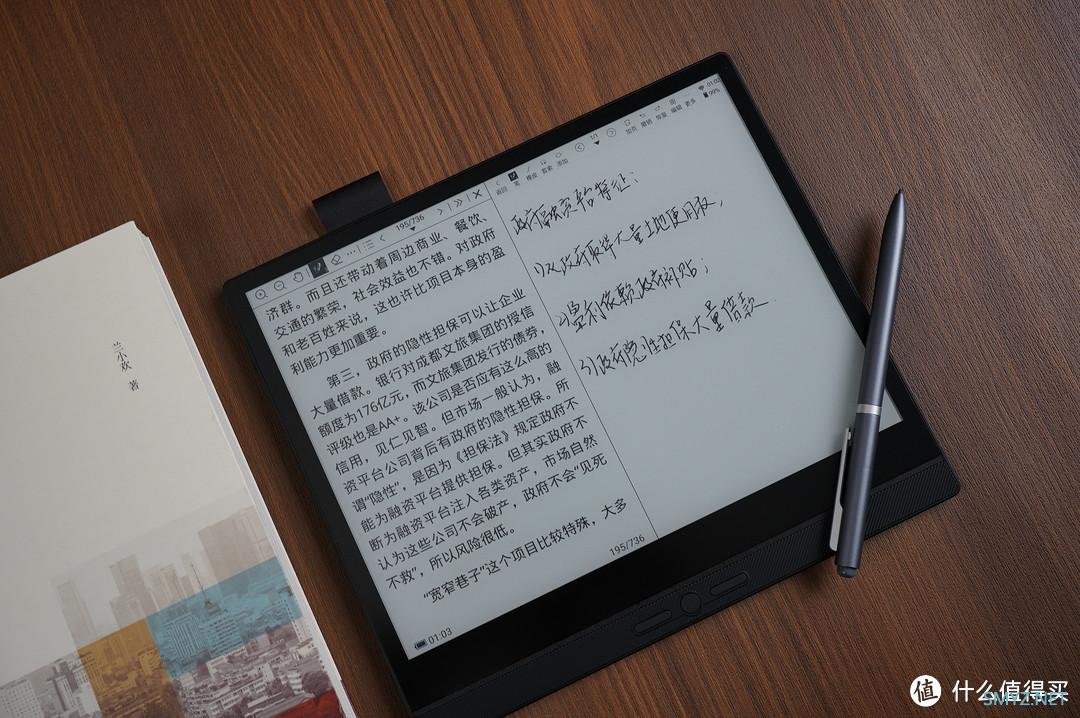 兰小欢 著
195/736
济群。而且还带动着周边商业、餐饮、
交通的繁荣，社会效益也不错。对政府
和老百姓来说，这也许比项目本身的盈
利能力更加重要。
第三，政府的隐性担保可以让企业
大量借款。银行对成都文旅集团的授信
额度为176亿元，而文旅集团发行的债券，
评级也是AA+。该公司是否应有这么高的
信用，见仁见智。但市场一般认为，融
资平台公司背后有政府的隐性担保。所
谓“隐性”，是因为《担保法》规定政府不
能为融资平台提供担保。但其实政府不
断为融资平台注入各类资产，市场自然
认为这些公司不会破产，政府不会“见死
不救”，所以风险很低。
“宽窄巷子”这个项目比较特殊，大多
01:03
195/736
返回 笔 橡皮 套索 添加 1/1 加页 撤销 恢复 编辑 更多
01:02
99%
政府融资平台特征：
1）从政府取得大量土地使用权，
2）盈利依赖政府补贴；
3）政府隐性担保大量借款
值 什么值得买
SMYZ.NET